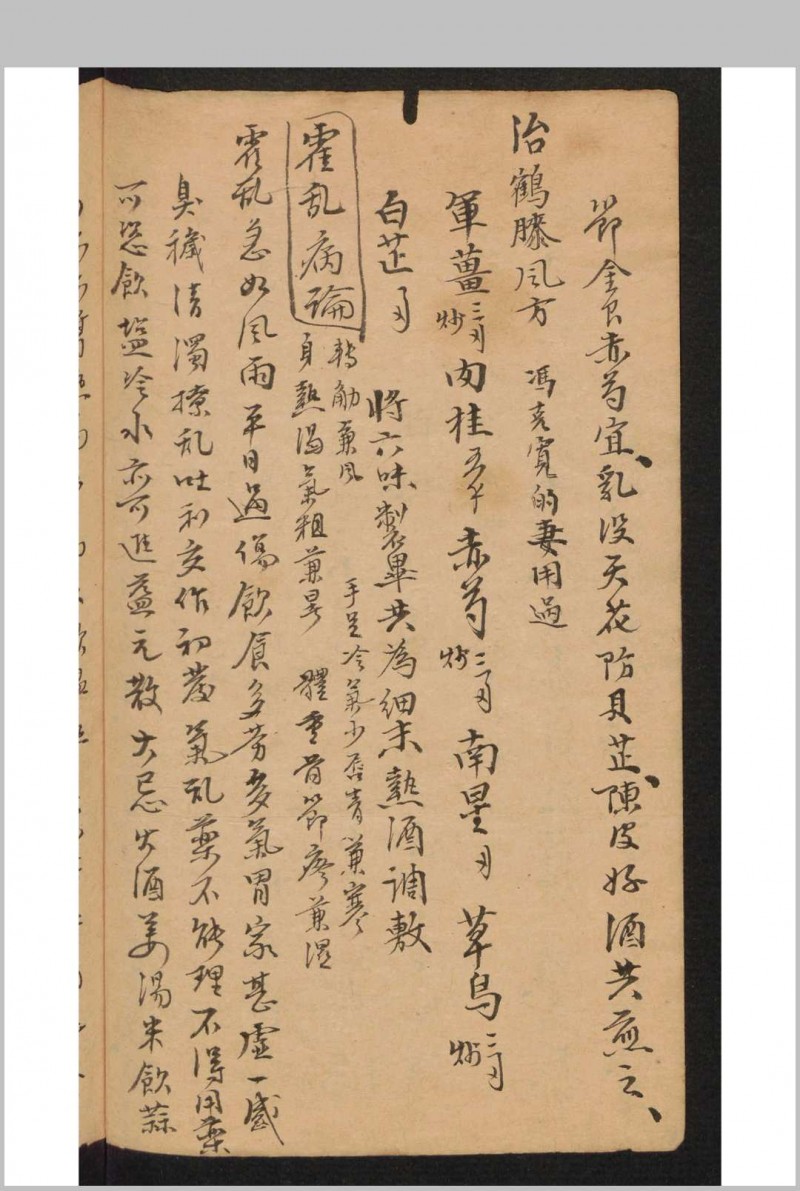 節金良赤芍宜、乳没天花防貝芷、陳皮好酒共煎之、
治鶴膝風方 馮克寬的妻用過
軍薑 炒 肉桂 赤芍 炒 南星 草烏 炒
白芷 將六味製畢共為細末熱酒調敷
霍乱病論 轉觔兼風 手足冷氣少唇青兼寒
身熱渴氣粗兼暑 體重骨節疼兼濕
霍乱急如風雨平日過傷飲食多劳多氣胃家甚虛一感
臭穢清濁撩乱吐利交作初發氣乱藥不能理不得用藥
可恣飲塩冷水亦可進益元散大忌火酒姜湯米飲蒜